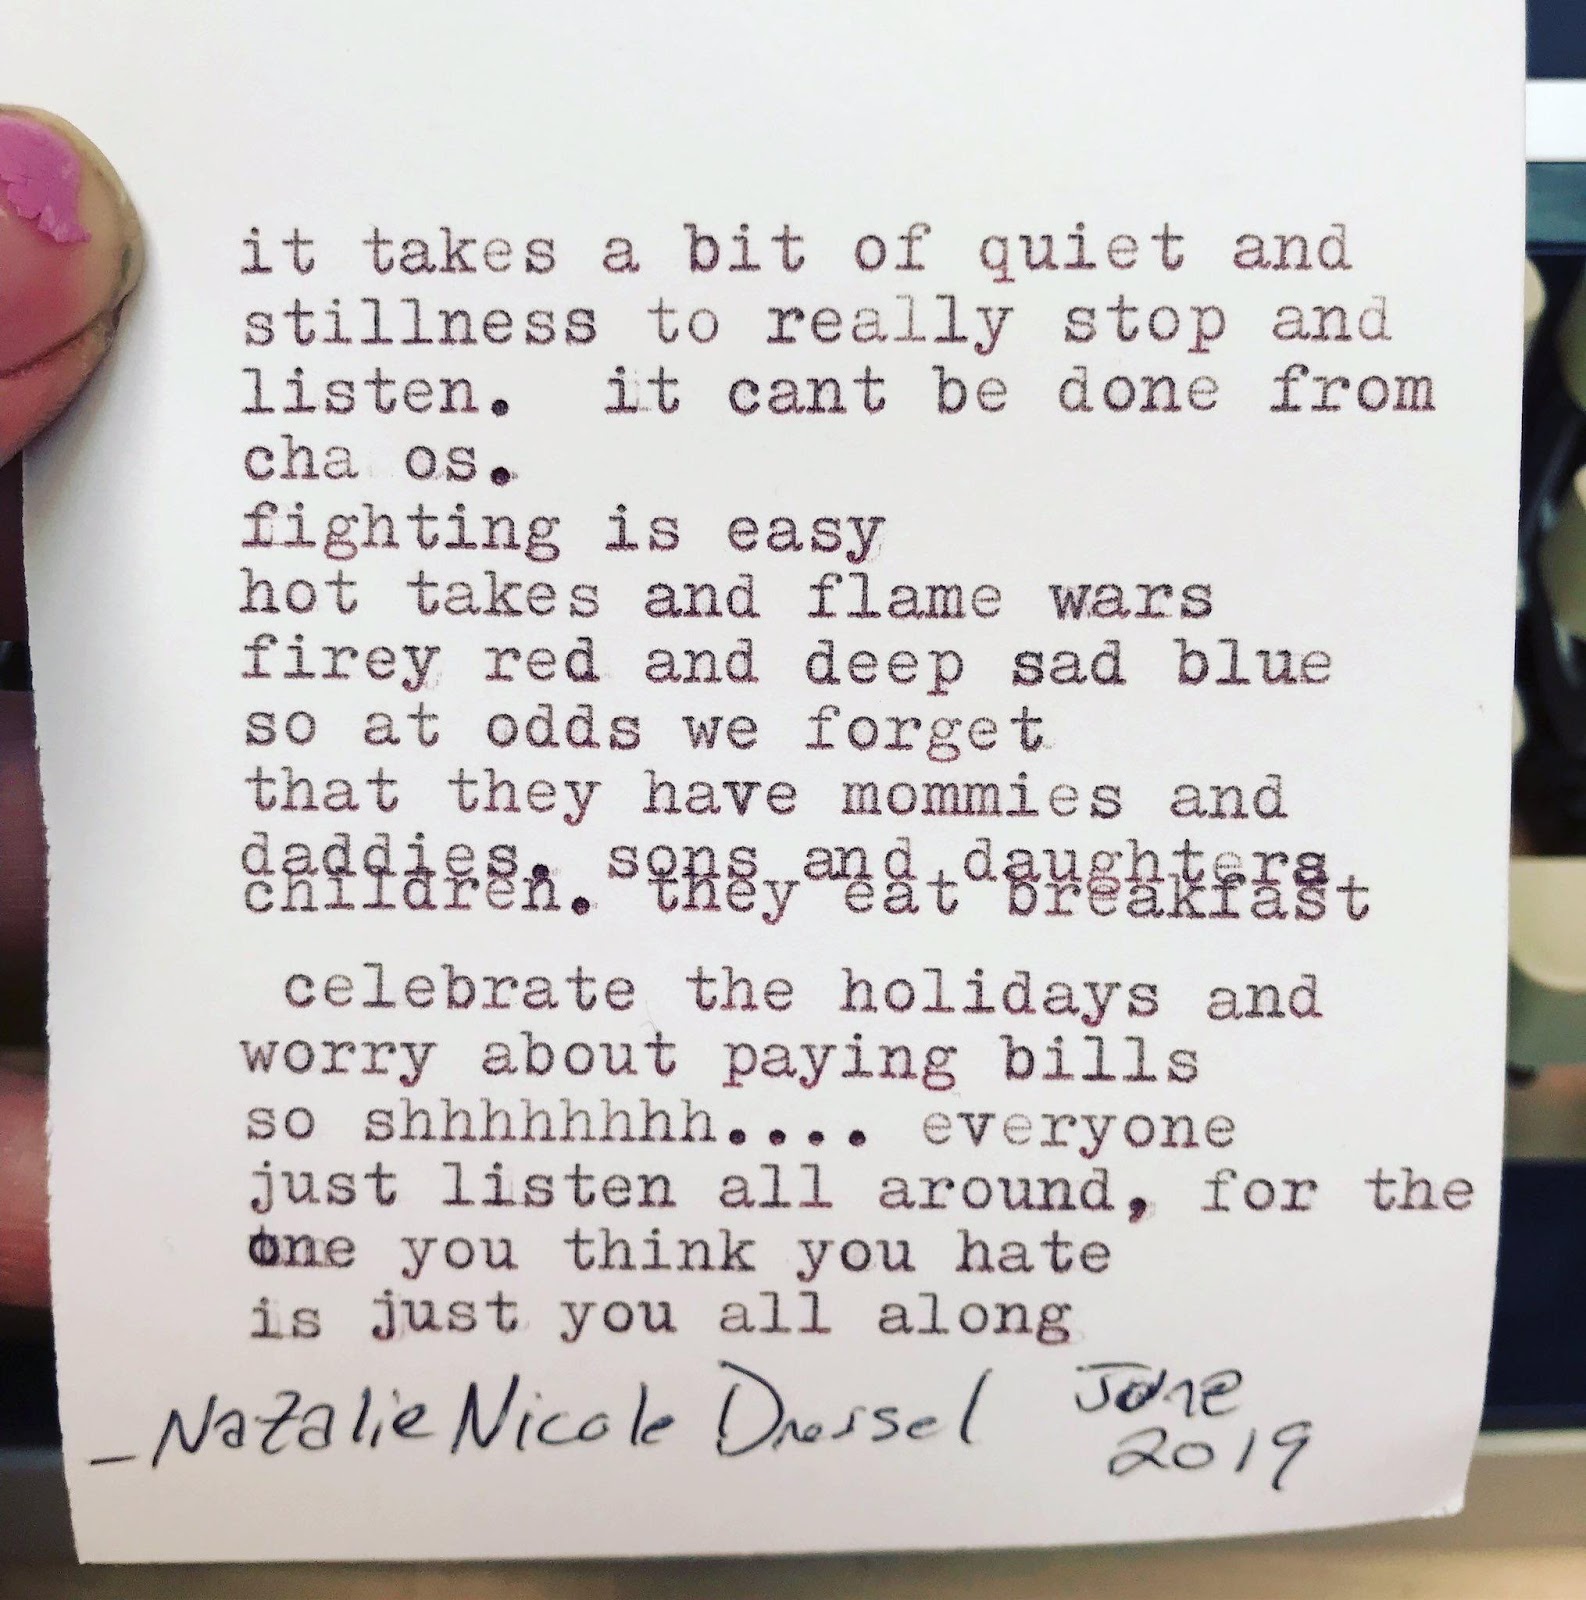 it takes a bit of quiet and
stillness to really stop and
listen.  it cant be done from
cha os.
fighting is easy
hot takes and flame wars
firey red and deep sad blue
so at odds we forget
that they have mommies and
daddies. sons and daughters
children. they eat breakfast
celebrate the holidays and
worry about paying bills
so shhhhhhhh.... everyone
just listen all around, for the
one you think you hate
is just you all along
– Natalie Nicole Dressel June
2019